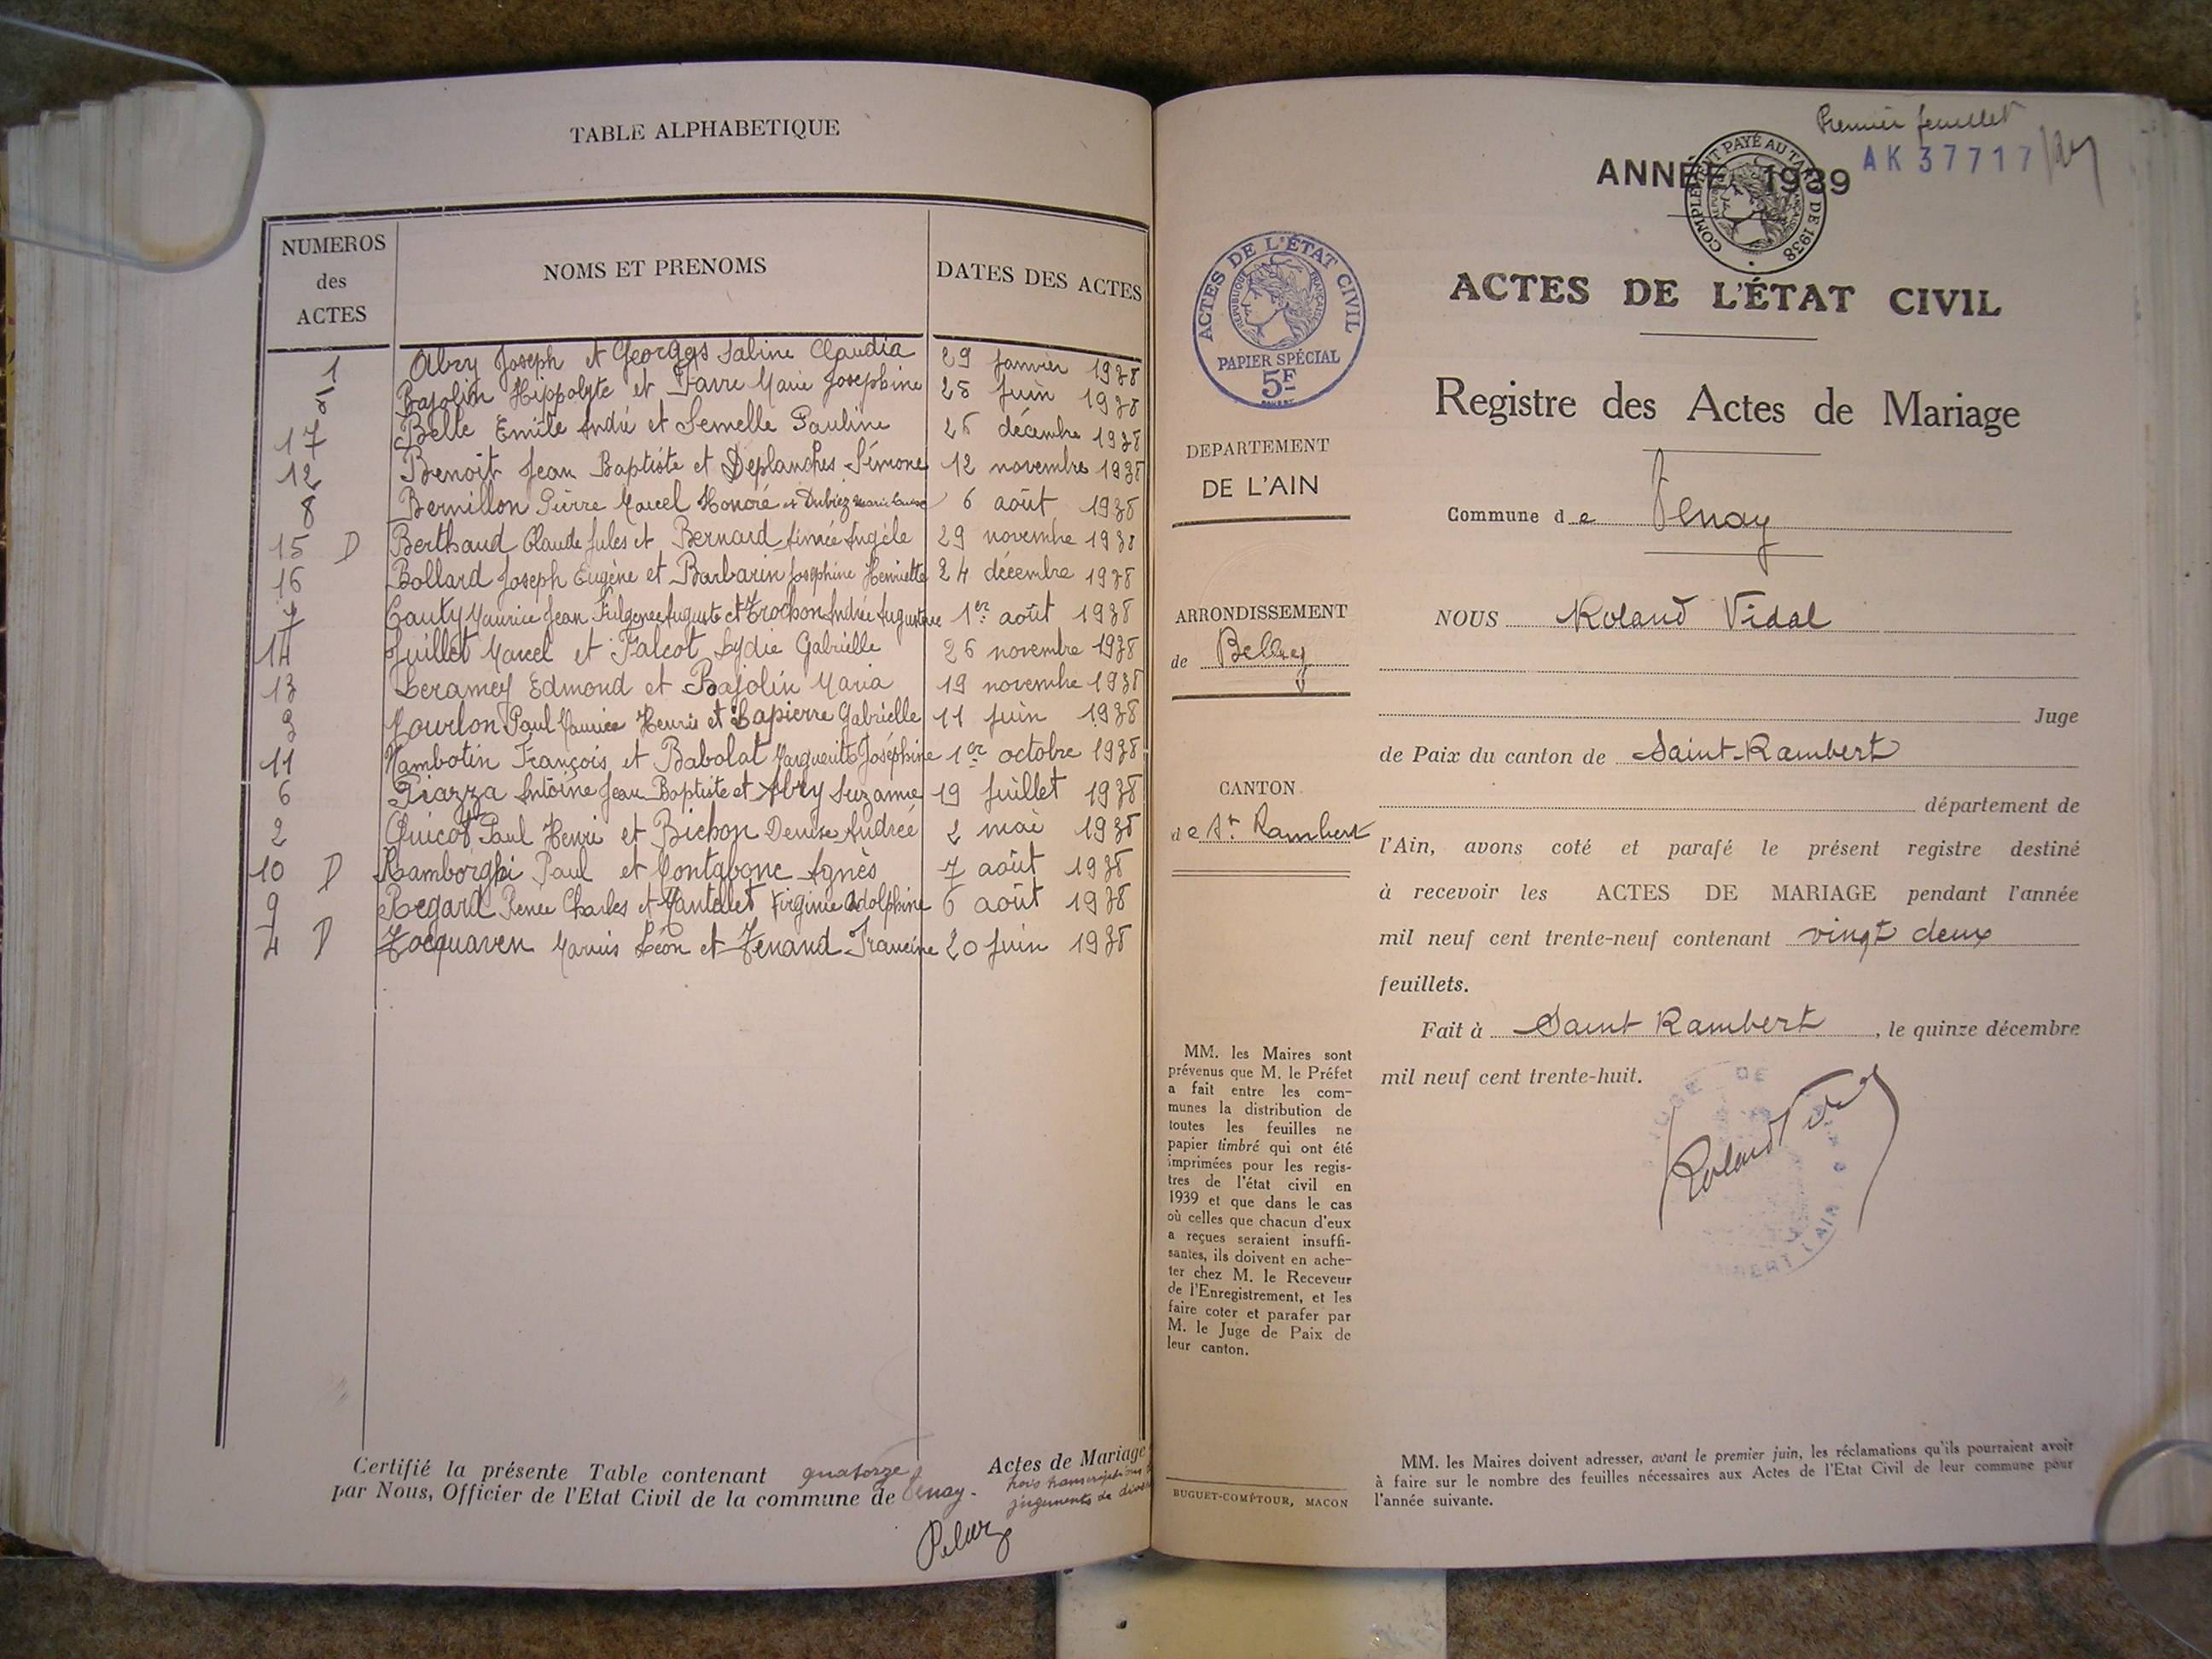 TABLE ALPHABETIQUE
NUMEROS des ACTES
NOMS ET PRENOMS
DATES DES ACTES
1 Abry Joseph et Georges Sabine Claudia 29 janvier 1938
Bajolin Hippolyte et Favre Marie Josephine 25 juin 1938
17 Belle Emile André et Semelle Pauline 26 décembre 1938
12 Benoit Jean Baptiste et Deplanches Simone 12 novembre 1938
8 Bernillon Pierre Marcel Honoré et Dubiez Marie Louise 6 août 1938
15 D Berthaud Claude Jules et Bernard Aimée Angèle 29 novembre 1938
16 Bollard Joseph Eugène et Barbarin Joséphine Henriette 24 décembre 1938
7 Cauty Maurice Jean Fulgence Auguste et Trochon Andrée Augustine 1er août 1938
14 Juillet Marcel et Falcot Lydie Gabrielle 26 novembre 1938
13 Leramey Edmond et Bajolin Maria 19 novembre 1938
3 Mourlon Paul Maurice Henri et Lapierre Gabrielle 11 juin 1938
11 Nambotin François et Babolat Marguerite Joséphine 1er octobre 1938
6 Piazza Antoine Jean Baptiste et Abry Suzanne 19 juillet 1938
2 Quicot Paul Henri et Bichon Denise Andrée 2 mai 1938
10 D Ramborghi Paul et Agnès 7 août 1938
9 Regard René Charles et Mantellet Virginie Adolphine 6 août 1938
4 D Tocquaven Marius Léon et Tenand Francine 20 juin 1938
Certifié la présente Table contenant quatorze Actes de Mariage
trois transcriptions
par Nous, Officier de l'Etat Civil de la commune de Tenay. jugements de
Premier feuillet
ANNÉE 1939
AK 37717
COMPLÉMENT PAYÉ AU TARIF DE 1938
ACTES DE L'ÉTAT CIVIL
RÉPUBLIQUE FRANÇAISE
PAPIER SPÉCIAL
5F
DEPARTEMENT
DE L'AIN
ARRONDISSEMENT
de Belley
CANTON
de St Rambert
MM. les Maires sont
prévenus que M. le Préfet
a fait entre les com-
munes la distribution de
toutes les feuilles ne
papier timbré qui ont été
imprimées pour les regis-
tres de l'état civil en
1939 et que dans le cas
où celles que chacun d'eux
a reçues seraient insuffi-
santes, ils doivent en ache-
ter chez M. le Receveur
de l'Enregistrement, et les
faire coter et parafer par
M. le Juge de Paix de
leur canton.
BUGUET-COMPTOUR, MACON
ACTES DE L'ÉTAT CIVIL
Registre des Actes de Mariage
Commune de Tenay
NOUS Roland Vidal
Juge
de Paix du canton de Saint-Rambert
département de
l'Ain, avons coté et parafé le présent registre destiné
à recevoir les ACTES DE MARIAGE pendant l'année
mil neuf cent trente-neuf contenant vingt deux
feuillets.
Fait à Saint Rambert, le quinze décembre
mil neuf cent trente-huit.
Roland Vidal
MM. les Maires doivent adresser, avant le premier juin, les réclamations qu'ils pourraient avoir
à faire sur le nombre des feuilles nécessaires aux Actes de l'Etat Civil de leur commune pour
l'année suivante.